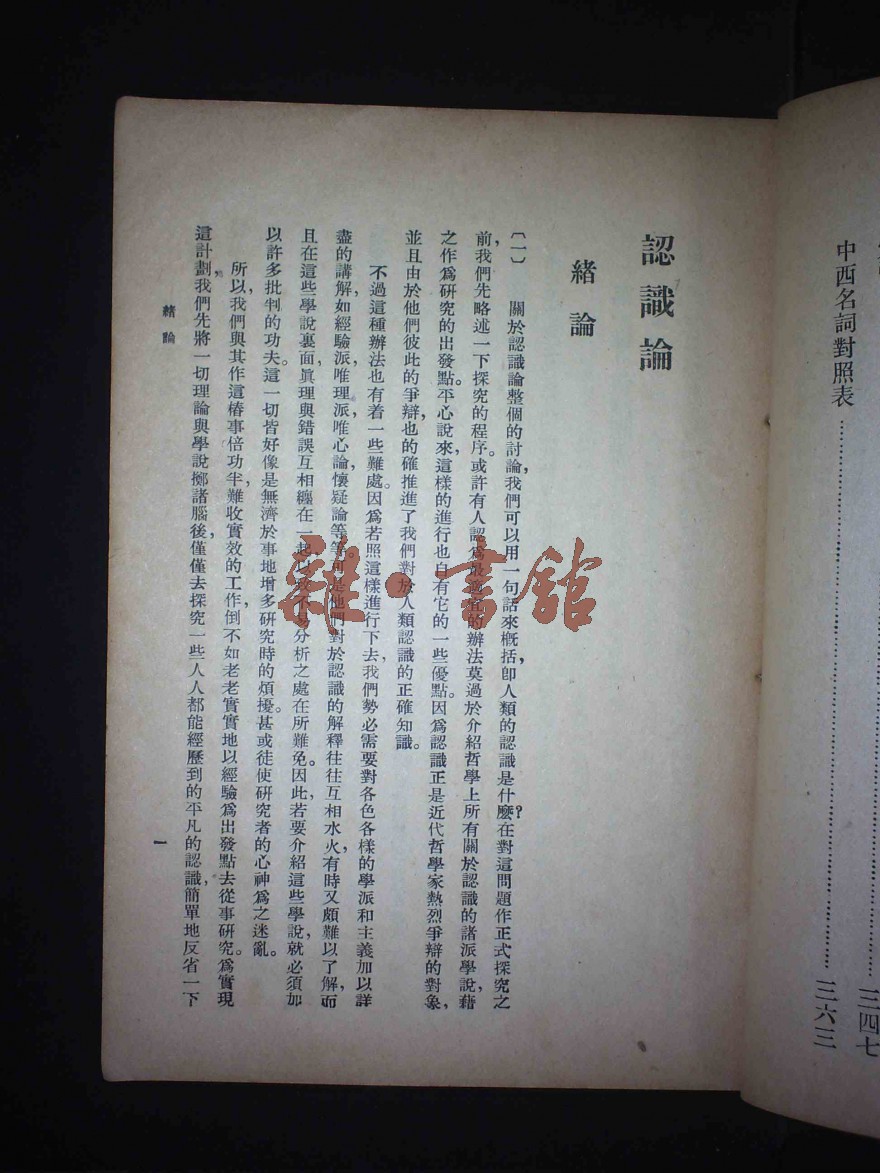 中西名詞對照表……三六三
三四七
認識論
緒論
〔一〕　關於認識論整個的討論，我們可以用一句話來概括，卽人類的認識是什麼？在對這問題作正式探究之
前，我們先略述一下探究的程序。或許有人認爲最適宜的辦法莫過於介紹哲學上所有關於認識的諸派學說，藉
之作爲研究的出發點。平心說來，這樣的進行也自有它的一些優點。因爲認識正是近代哲學家熱烈爭辯的對象，
並且由於他們彼此的爭辯，也的確推進了我們對於人類認識的正確知識。
不過這種辦法也有着一些難處。因爲若照這樣進行下去，我們勢必需要對各色各樣的學派和主義加以詳
盡的講解，如經驗派，唯理派，唯心論，懷疑論等等。可是他們對於認識的解釋往往互相水火，有時又頗難以了解，而
且在這些學說裏面，眞理與錯誤互相纏在一起，以致不易分析之處在所難免。因此，若要介紹這些學說，就必須加
以許多批判的功夫。這一切皆好像是無濟於事地增多研究時的煩擾。甚或徒使研究者的心神爲之迷亂。
所以，我們與其作這樁事倍功半，難收實效的工作，倒不如老老實實地以經驗爲出發點去從事研究。爲實現
這計劃，我們先將一切理論與學說擲諸腦後，僅僅去探究一些人人都能經歷到的平凡的認識，簡單地反省一下
緒論
一
雜·書館